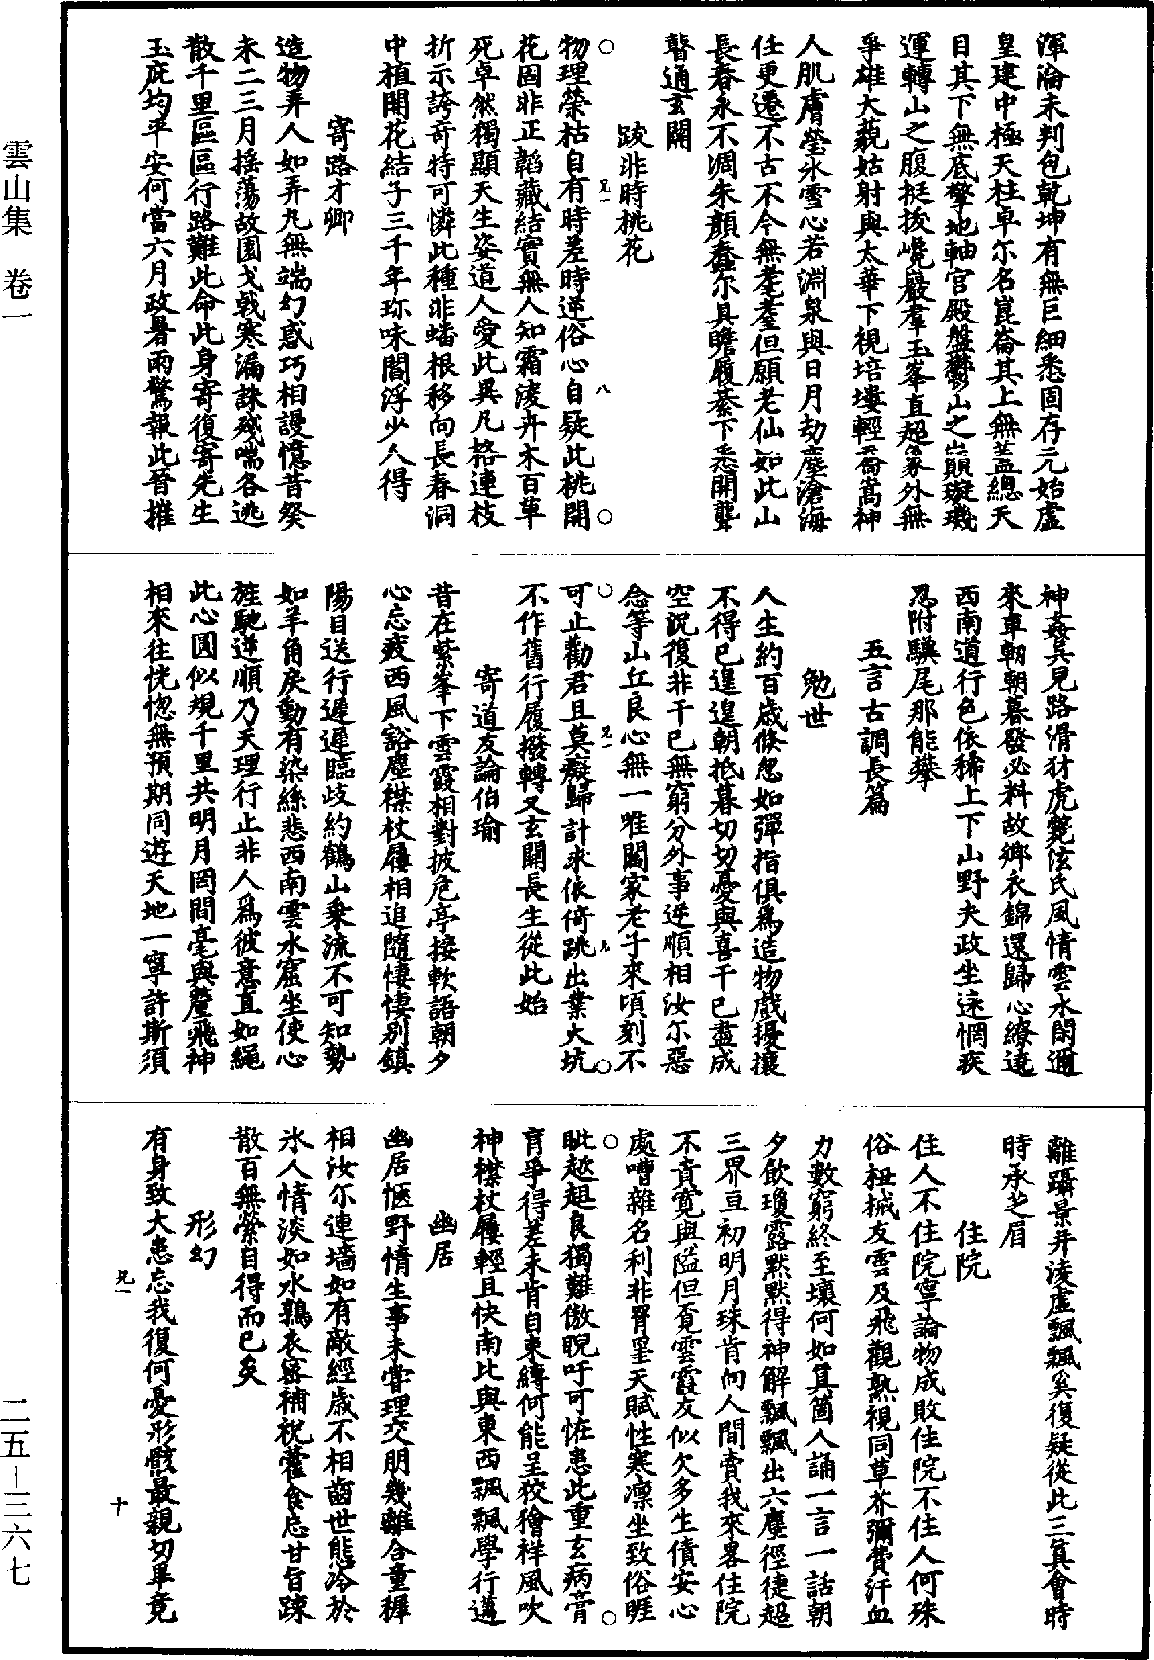 渾淪未判包乾坤有無巨細悉固存元始虛
皇建中極天柱卓尔名崑崙其上無蓋總天
目其下無底擎地軸宮殿盤鬱山之巔璇璣
運轉山之腹挺拔巉巖羣玉峯直超象外無
爭雄大藐姑射與太華下視培塿輕喬嵩神
人肌膚瑩冰雪心若淵泉與日月劫塵滄海
任更遷不古不今無耄耋但願老仙如此山
長春永不凋朱顏蠢尔具瞻履綦下悉開聾
瞽通玄關
跋非時桃花
物理榮枯自有時差時逆俗心自疑此桃開
花固非正韜藏結實無人知霜淩卉木百草
死卓然獨顯天生姿道人愛此異凡格連枝
折示誇奇特可憐此種非蟠根移向長春洞
中植開花結子三千年珎味閻浮少人得
寄路才卿
造物弄人如弄丸無端幻惑巧相謾憶昔癸
未二三月搖蕩故園戈戟寒漏誅殘喘各逃
散千里區區行路難此命此身寄復寄先生
玉庇均平安何當六月政暑雨驚報此晉摧
神姦其見路滑犲虎競泫氏風情雲水閑邇
來車朝朝暮發必料故鄉衣錦還歸心繚遶
西南道行色依稀上下山野夫政坐迷惘疾
忍附驥尾那能攀
五言古調長篇
勉世
人生約百歲倐忽如彈指俱為造物戲擾攘
不得已遑遑朝抵暮切切憂與喜千巳盡成
空況復非干己無窮分外事逆順相汝尔惡
念等山丘良心無一唯閻家老子來頃刻不
可止勸君且莫癡歸計求依倚跳出業大坑
不作舊行履撥轉又玄關長生從此始
寄道友論伯瑜
昔在紫峯下雲霞相對披危亭接軟語朝夕
心忘疲西風豁塵襟杖屨相追隨悽悽別鎮
陽目送行遲遲臨歧約鶴山乗流不可知勢
如羊角戾動有染絲悲西南雲水窟坐使心
旌馳逆順乃天理行止非人為彼意直如繩
此心圓似規千里共明月罔間毫與釐飛神
相來往恍惚無預期同遊天地一寧許斯須
離躡景并淩虛飄飄奚復疑從此三真會時
時承芝眉
住院
住人不住院寧論物成敗住院不住人何殊
俗杻械友雲及飛觀熟視同草芥彌費汗血
力數窮終至壞何如箕箇人誦一言一話朝
夕飲瓊露默默得神解飄飄出六塵徑徒超
三界亘初明月珠肯向人間賣我來畧住院
不責寬與隘但覓雲霞友似欠多生債安心
處嘈雜名利非罥罣天賦性寒凛坐致俗睚
眦趑趄良獨難傲睨吁可恠患此重玄病膏
肓爭得差未肯自束縛何能呈狡獪祥風吹
神襟杖屨輕且快南北與東西飄飄學行邁
幽居
幽居愜野情生事未嘗理交朋幾離合童穉
相汝尔連墻如有敵經歲不相齒世態冷於
氷人情淡如水鶉衣寒補裞藿食忘甘旨踈
散百無縈自得而已矣
形幻
有身致大患忘我復何憂形骸最親切畢竟
兄一 八
兄一 九
兄一 十
雲山集 卷一
二五—三六七